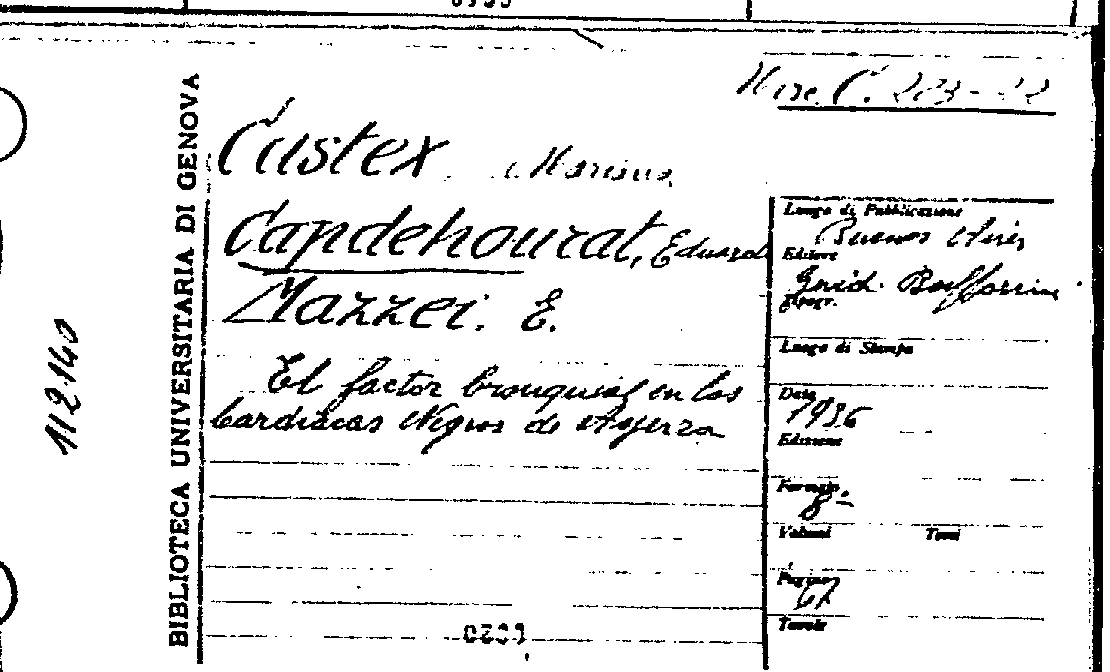 BIBLIOTECA UNIVERSITARIA DI GENOVA
112140
Misc. C. 223-22
Castex Mariano
Capdehourat, Eduardo
Mazzei. E.
El factor bronquial en los
Cardiacos Negros de Ayerza
Luogo di Pubblicazione
Buenos Aires
Editore
Tipogr.
Luogo di Stampa
Data
1936
Edizione
Formato
8°
Volumi Tomi
Pagine
Tavole